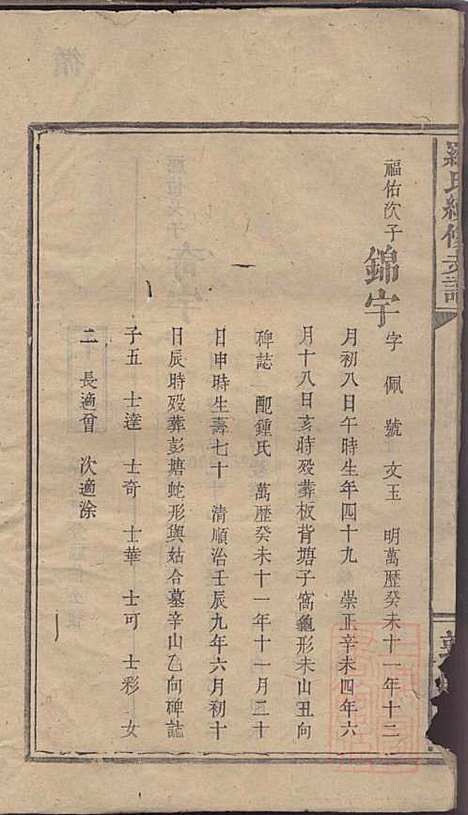 羅氏續修支譜
福佑次子
錦宇
字佩號文玉明萬歷癸未十一年十二
月初八日午時生年四十九崇正辛未四年六
月十八日亥時歿葬板背塘子窩龜形未山丑向
碑誌配鍾氏萬歷癸未十一年十一月二十
日申時生壽七十清順治壬辰九年六月初十
日辰時歿葬彭塘蛇形與姑合墓辛山乙向碑誌
子五士達士奇士華士可士彩女
二長適曾次適涂